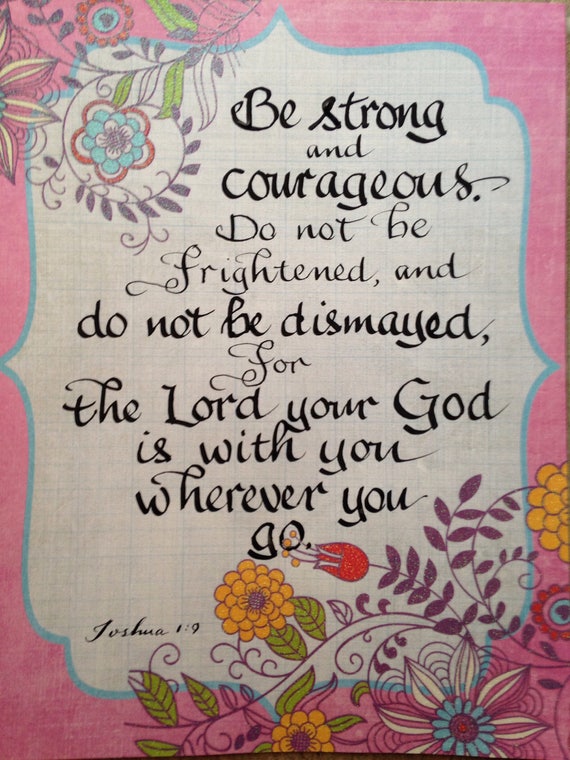 Be strong
and
courageous.
Do not be
frightened, and
do not be dismayed,
for
the Lord your God
is with you
wherever you
go.
Joshua 1:9